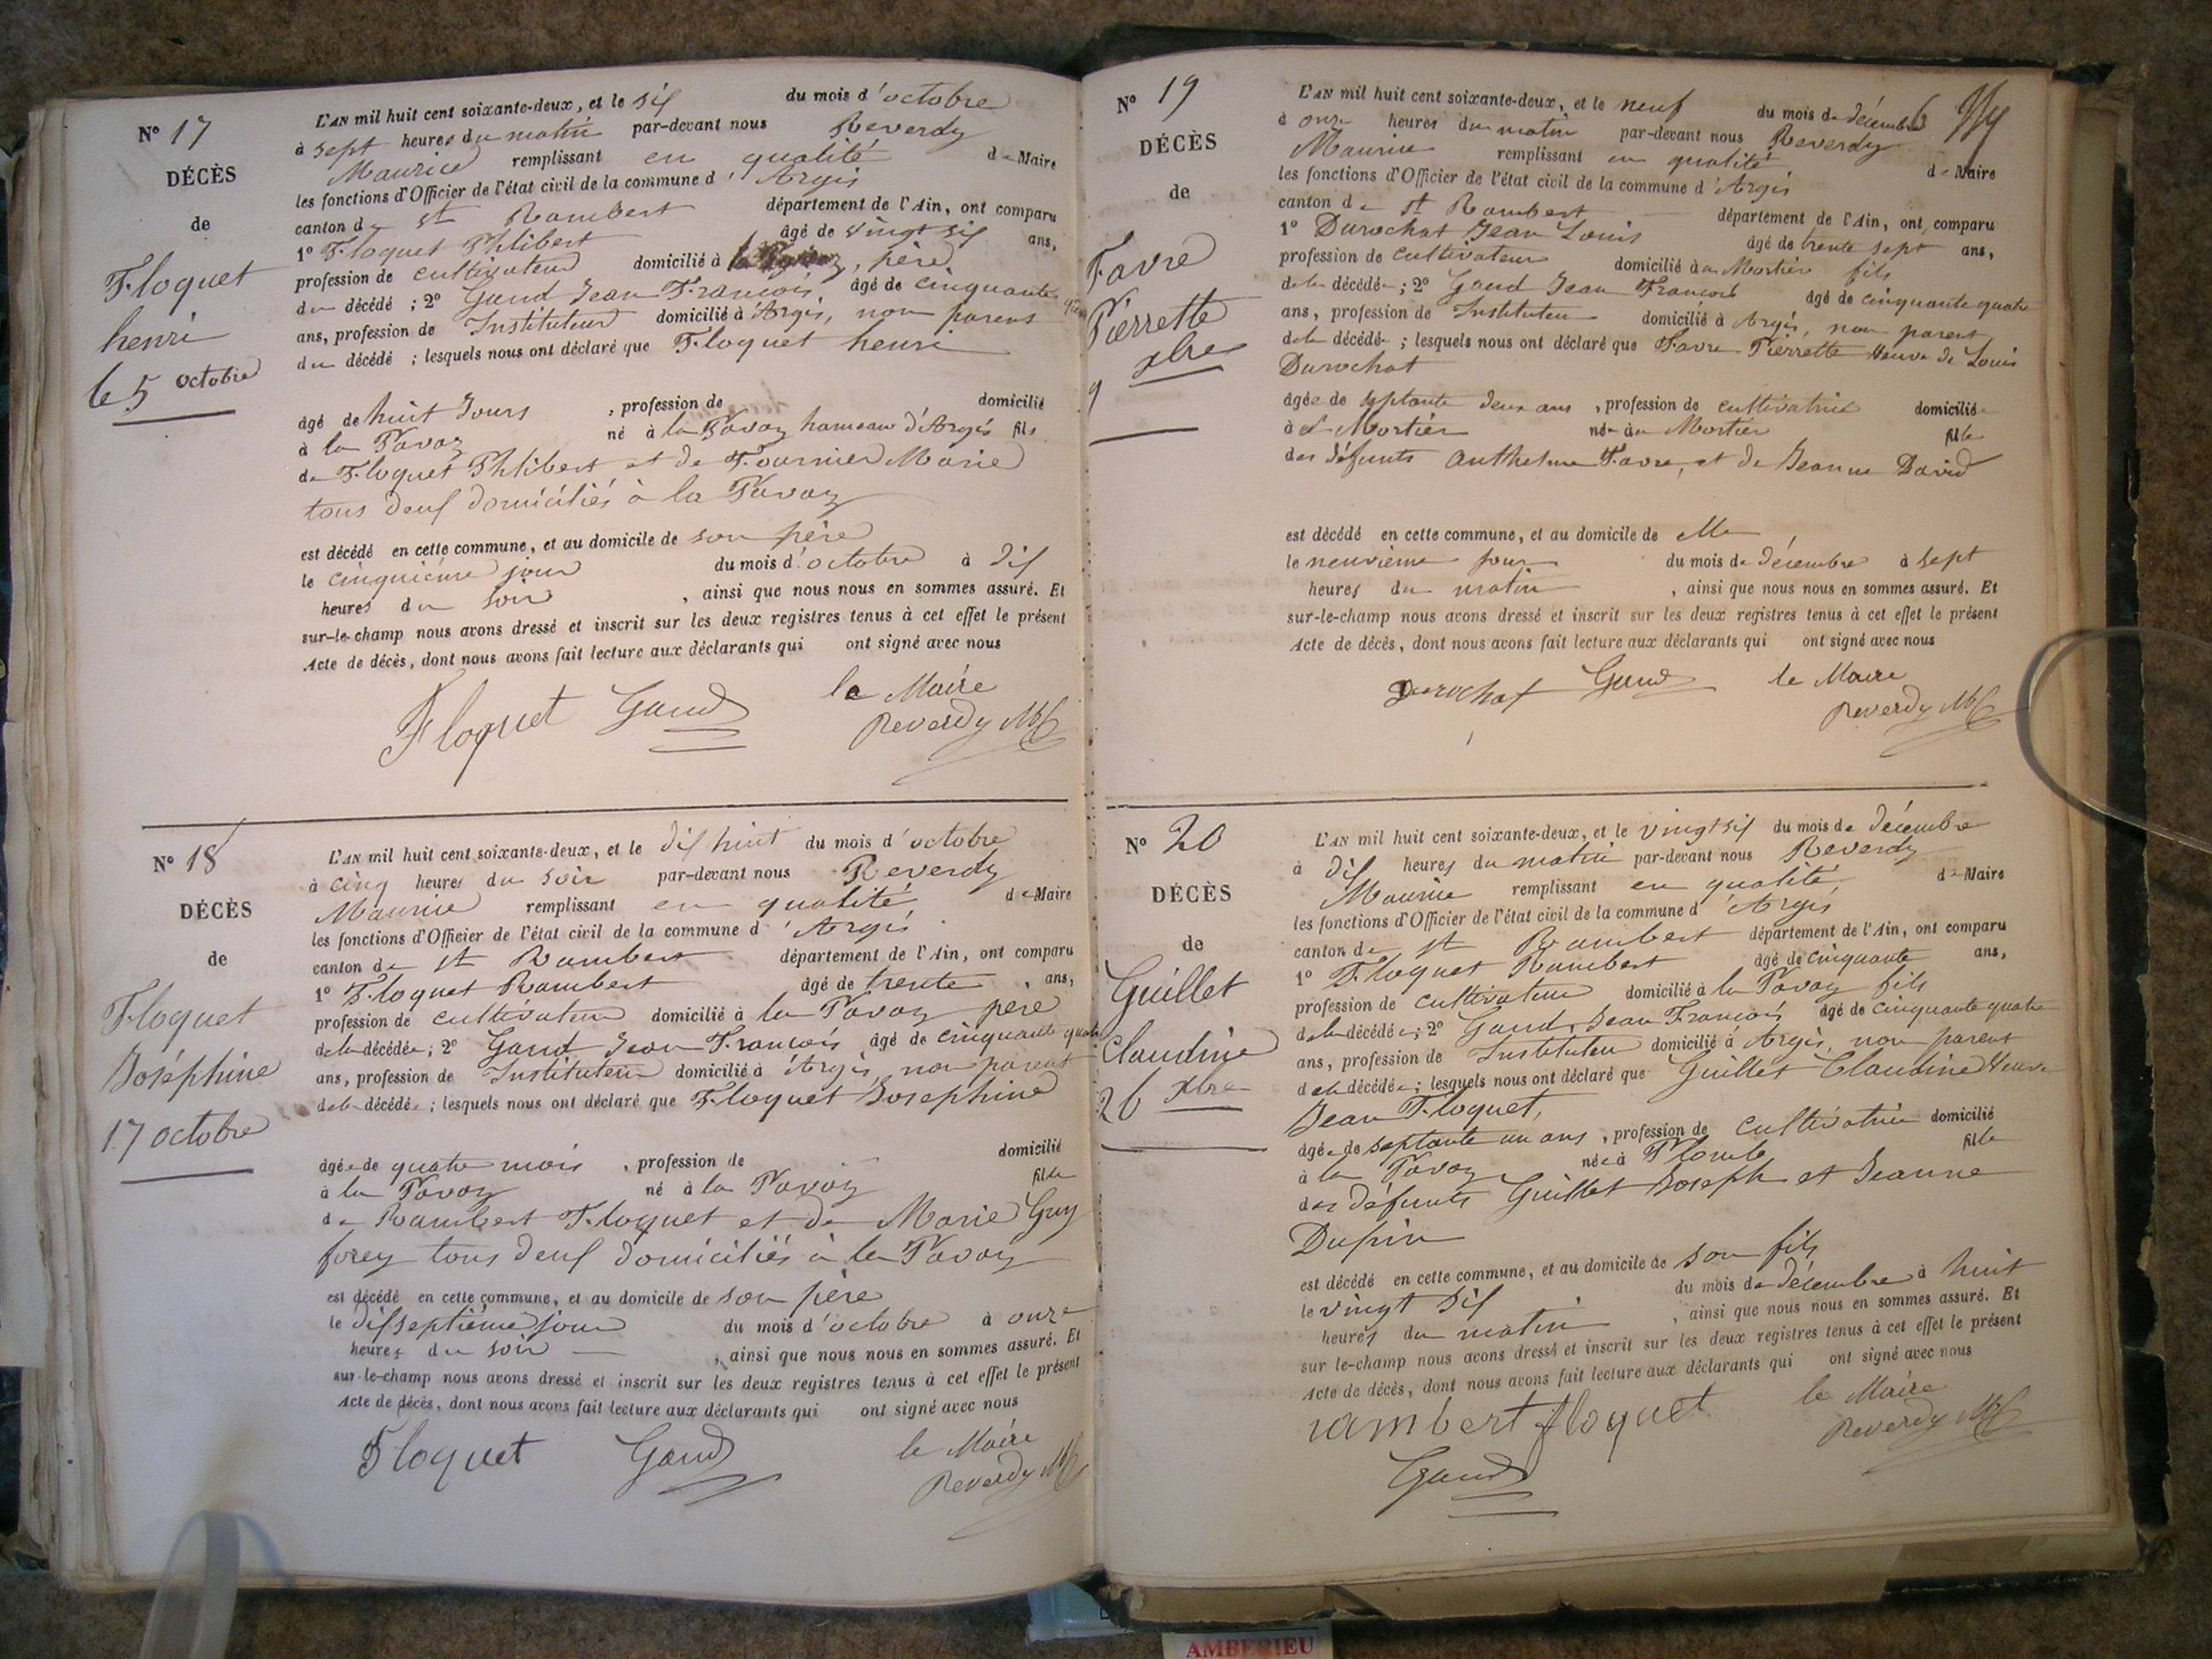 N° 17
DÉCÈS
de
Floquet
henri
le 5 octobre
L'AN mil huit cent soixante-deux, et le six du mois d'octobre
à sept heures du matin par-devant nous Reverdy
Maurice remplissant en qualité de Maire
les fonctions d'Officier de l'état civil de la commune d'Argis
canton de St Rambert département de l'Ain, ont comparu
1° Floquet Philibert âgé de vingt six ans,
profession de cultivateur domicilié à la , père
du décédé ; 2° Gaud Jean François âgé de cinquante
ans, profession de Instituteur domicilié à Argis, non parent
du décédé ; lesquels nous ont déclaré que Floquet henri
âgé de huit Jours , profession de domicilié
à la Pavaz né à la Pavaz hameau d'Argis fils
de Floquet Philibert et de Fournier Marie
tous deux domiciliés à la Pavaz
est décédé en cette commune, et au domicile de son père
le cinquième jour du mois d'octobre à dix
heures du soir , ainsi que nous nous en sommes assuré. Et
sur-le-champ nous avons dressé et inscrit sur les deux registres tenus à cet effet le présent
Acte de décès, dont nous avons fait lecture aux déclarants qui ont signé avec nous
Floquet Gaud le Maire
Reverdy
N° 18
DÉCÈS
de
Floquet
Joséphine
17 octobre
L'AN mil huit cent soixante-deux, et le dix huit du mois d'octobre
à cinq heures du soir par-devant nous Reverdy
Maurice remplissant en qualité de Maire
les fonctions d'Officier de l'état civil de la commune d'Argis
canton de St Rambert département de l'Ain, ont comparu
1° Floquet Rambert âgé de trente ans,
profession de cultivateur domicilié à la Pavaz père
de la décédée ; 2° Gaud Jean François âgé de cinquante quatre
ans, profession de Instituteur domicilié à Argis, non parent
de la décédée ; lesquels nous ont déclaré que Floquet Josephine
âgée de quatre mois , profession de domicilié
à la Pavaz né à la Pavaz fille
de Rambert Floquet et de Marie Guy
forey tous deux domiciliés à la Pavaz
est décédé en cette commune, et au domicile de son père
le dix septième jour du mois d'octobre à onze
heures du soir , ainsi que nous nous en sommes assuré. Et
sur-le-champ nous avons dressé et inscrit sur les deux registres tenus à cet effet le présent
Acte de décès, dont nous avons fait lecture aux déclarants qui ont signé avec nous
Floquet Gaud le Maire
Reverdy
N° 19
DÉCÈS
de
Favre
Pierrette
9 xbre
L'AN mil huit cent soixante-deux, et le neuf du mois de décembre
à onze heures du matin par-devant nous Reverdy
Maurice remplissant en qualité de Maire
les fonctions d'Officier de l'état civil de la commune d'Argis
canton de St Rambert département de l'Ain, ont comparu
1° Durochat Jean Louis âgé de trente sept ans,
profession de cultivateur domicilié au Mortier fils
de la décédée ; 2° Gaud Jean François âgé de cinquante quatre
ans, profession de Instituteur domicilié à Argis, non parent
de la décédée ; lesquels nous ont déclaré que Favre Pierrette Veuve de Louis
Durochat
âgée de septante deux ans , profession de cultivatrice domiciliée
à Mortier née au Mortier fille
des défunts Anthelme Favre, et de Jeanne David
est décédé en cette commune, et au domicile de elle
le neuvième jour du mois de décembre à sept
heures du matin , ainsi que nous nous en sommes assuré. Et
sur-le-champ nous avons dressé et inscrit sur les deux registres tenus à cet effet le présent
Acte de décès, dont nous avons fait lecture aux déclarants qui ont signé avec nous
Durochat Gaud le Maire
Reverdy
N° 20
DÉCÈS
de
Guillet
Claudine
26 xbre
L'AN mil huit cent soixante-deux, et le vingt six du mois de décembre
à dix heures du matin par-devant nous Reverdy
Maurice remplissant en qualité de Maire
les fonctions d'Officier de l'état civil de la commune d'Argis
canton de St Rambert département de l'Ain, ont comparu
1° Floquet Rambert âgé de cinquante ans,
profession de cultivateur domicilié à la Pavaz fils
de la décédée ; 2° Gaud Jean François âgé de cinquante quatre
ans, profession de Instituteur domicilié à Argis, non parent
de la décédée ; lesquels nous ont déclaré que Guillet Claudine Veuve
Jean Floquet,
âgée de septante un ans , profession de cultivatrice domicilié
à la Pavaz née à fille
des défunts Guillet Joseph et Jeanne
Dupin
est décédé en cette commune, et au domicile de son fils
le vingt six du mois de décembre à huit
heures du matin , ainsi que nous nous en sommes assuré. Et
sur le-champ nous avons dressé et inscrit sur les deux registres tenus à cet effet le présent
Acte de décès, dont nous avons fait lecture aux déclarants qui ont signé avec nous
rambert floquet le Maire
Gaud Reverdy
AMBERIEU